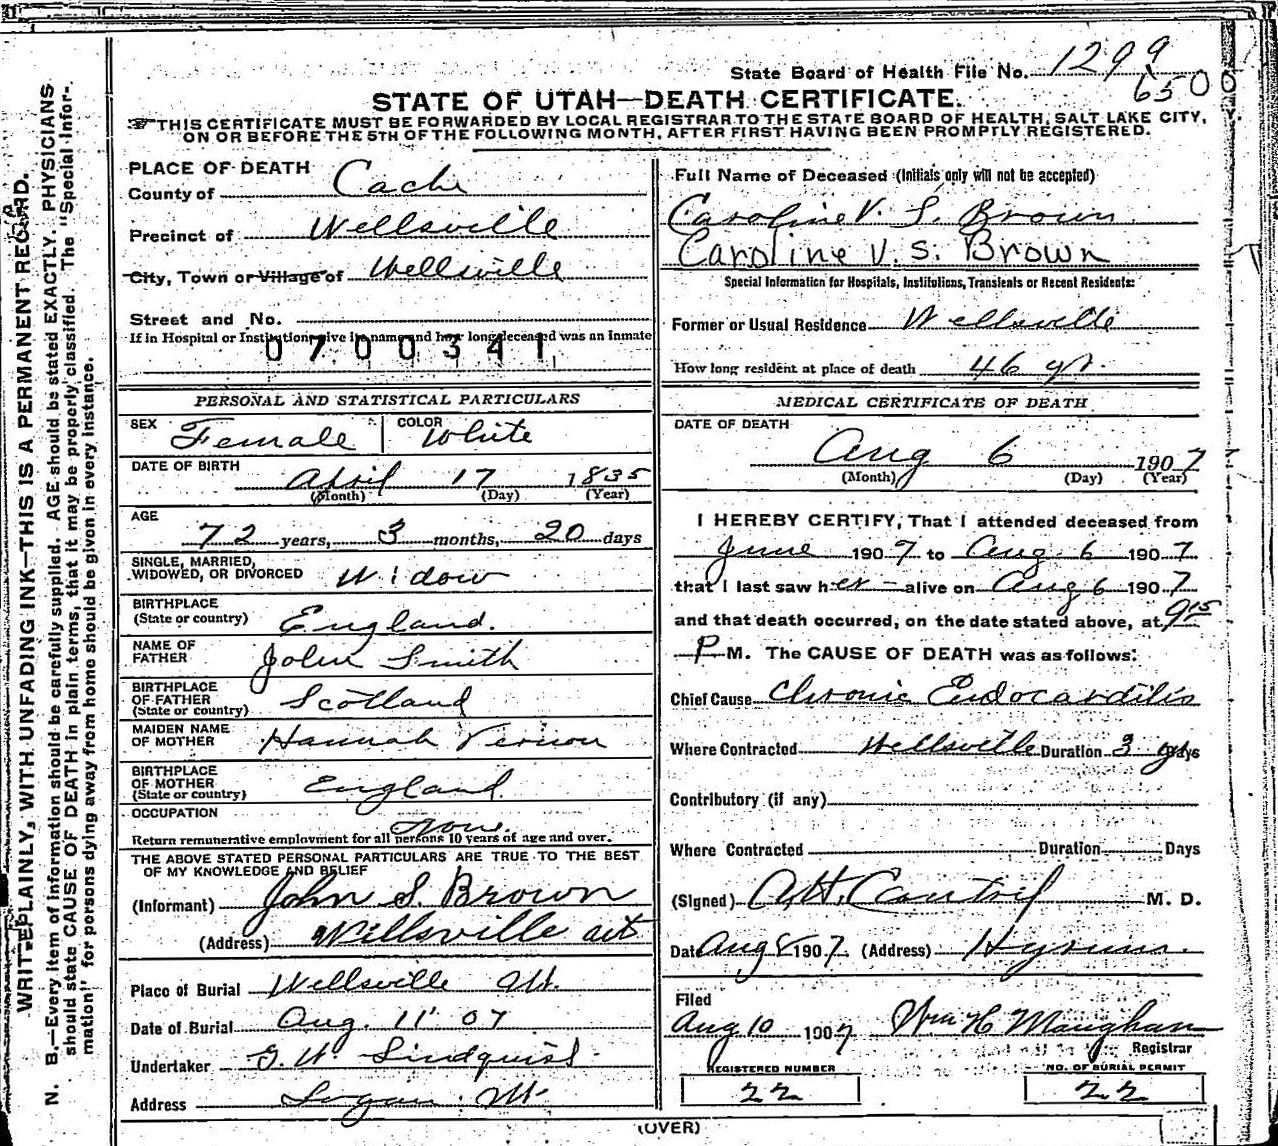 State Board of Health File No. 1299
6500
STATE OF UTAH—DEATH CERTIFICATE.
THIS CERTIFICATE MUST BE FORWARDED BY LOCAL REGISTRAR TO THE STATE BOARD OF HEALTH, SALT LAKE CITY,
ON OR BEFORE THE 5TH OF THE FOLLOWING MONTH, AFTER FIRST HAVING BEEN PROMPTLY REGISTERED.
WRITE PLAINLY, WITH UNFADING INK—THIS IS A PERMANENT RECORD.
N. B.—Every item of information should be carefully supplied. AGE should be stated EXACTLY. PHYSICIANS
should state CAUSE OF DEATH in plain terms, that it may be properly classified. The "Special Infor-
mation" for persons dying away from home should be given in every instance.
PLACE OF DEATH
County of Cache
Precinct of Wellsville
City, Town or Village of Wellsville
Street and No.
If in Hospital or Institution give its name and how long deceased was an Inmate
0700341
PERSONAL AND STATISTICAL PARTICULARS
SEX Female COLOR White
DATE OF BIRTH April 17 1835
(Month) (Day) (Year)
AGE
72 years, 3 months, 20 days
SINGLE, MARRIED,
WIDOWED, OR DIVORCED Widow
BIRTHPLACE
(State or country) England.
NAME OF
FATHER John Smith
BIRTHPLACE
OF FATHER
(State or country) Scotland
MAIDEN NAME
OF MOTHER Hannah Vernon
BIRTHPLACE
OF MOTHER
(State or country) England.
OCCUPATION
None.
Return remunerative employment for all persons 10 years of age and over.
THE ABOVE STATED PERSONAL PARTICULARS ARE TRUE TO THE BEST
OF MY KNOWLEDGE AND BELIEF
(Informant) John S. Brown
(Address) Wellsville ut
Place of Burial Wellsville Ut.
Date of Burial Aug. 11 07
Undertaker G. W. Lindquist
Address Logan Ut
Full Name of Deceased (Initials only will not be accepted)
Caroline V. S. Brown
Caroline V. S. Brown
Special Information for Hospitals, Institutions, Transients or Recent Residents:
Former or Usual Residence Wellsville
How long resident at place of death 46 yr.
MEDICAL CERTIFICATE OF DEATH
DATE OF DEATH
Aug 6 1907
(Month) (Day) (Year)
I HEREBY CERTIFY, That I attended deceased from
June 1907 to Aug 6 1907
that I last saw her alive on Aug 6 1907
and that death occurred, on the date stated above, at 9 15
P M. The CAUSE OF DEATH was as follows:
Chief Cause Chronic Endocarditis
Where Contracted Wellsville Duration 3 yrs
Contributory (if any)
Where Contracted Duration Days
(Signed) M. D.
Date Aug 8 1907 (Address) Hyrum.
Filed
Aug 10 1907 Wm H Maughan
Registrar
REGISTERED NUMBER
22
NO. OF BURIAL PERMIT
22
(OVER)